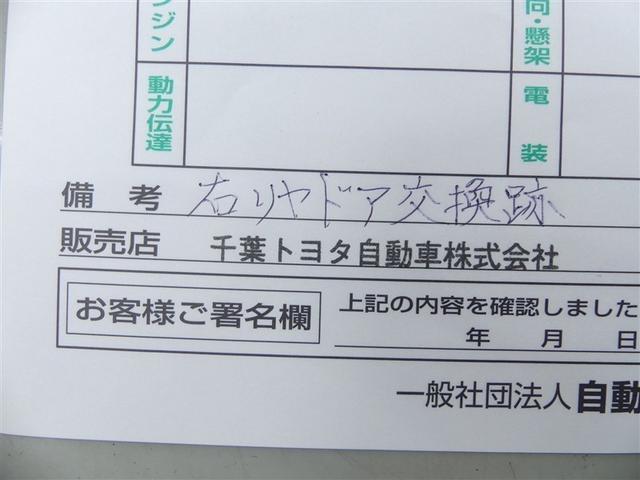 ンジン
向・懸架
動力伝達
電装
備考 右リヤドア交換跡
販売店 千葉トヨタ自動車株式会社
お客様ご署名欄
上記の内容を確認しました
年 月 日
一般社団法人 自動